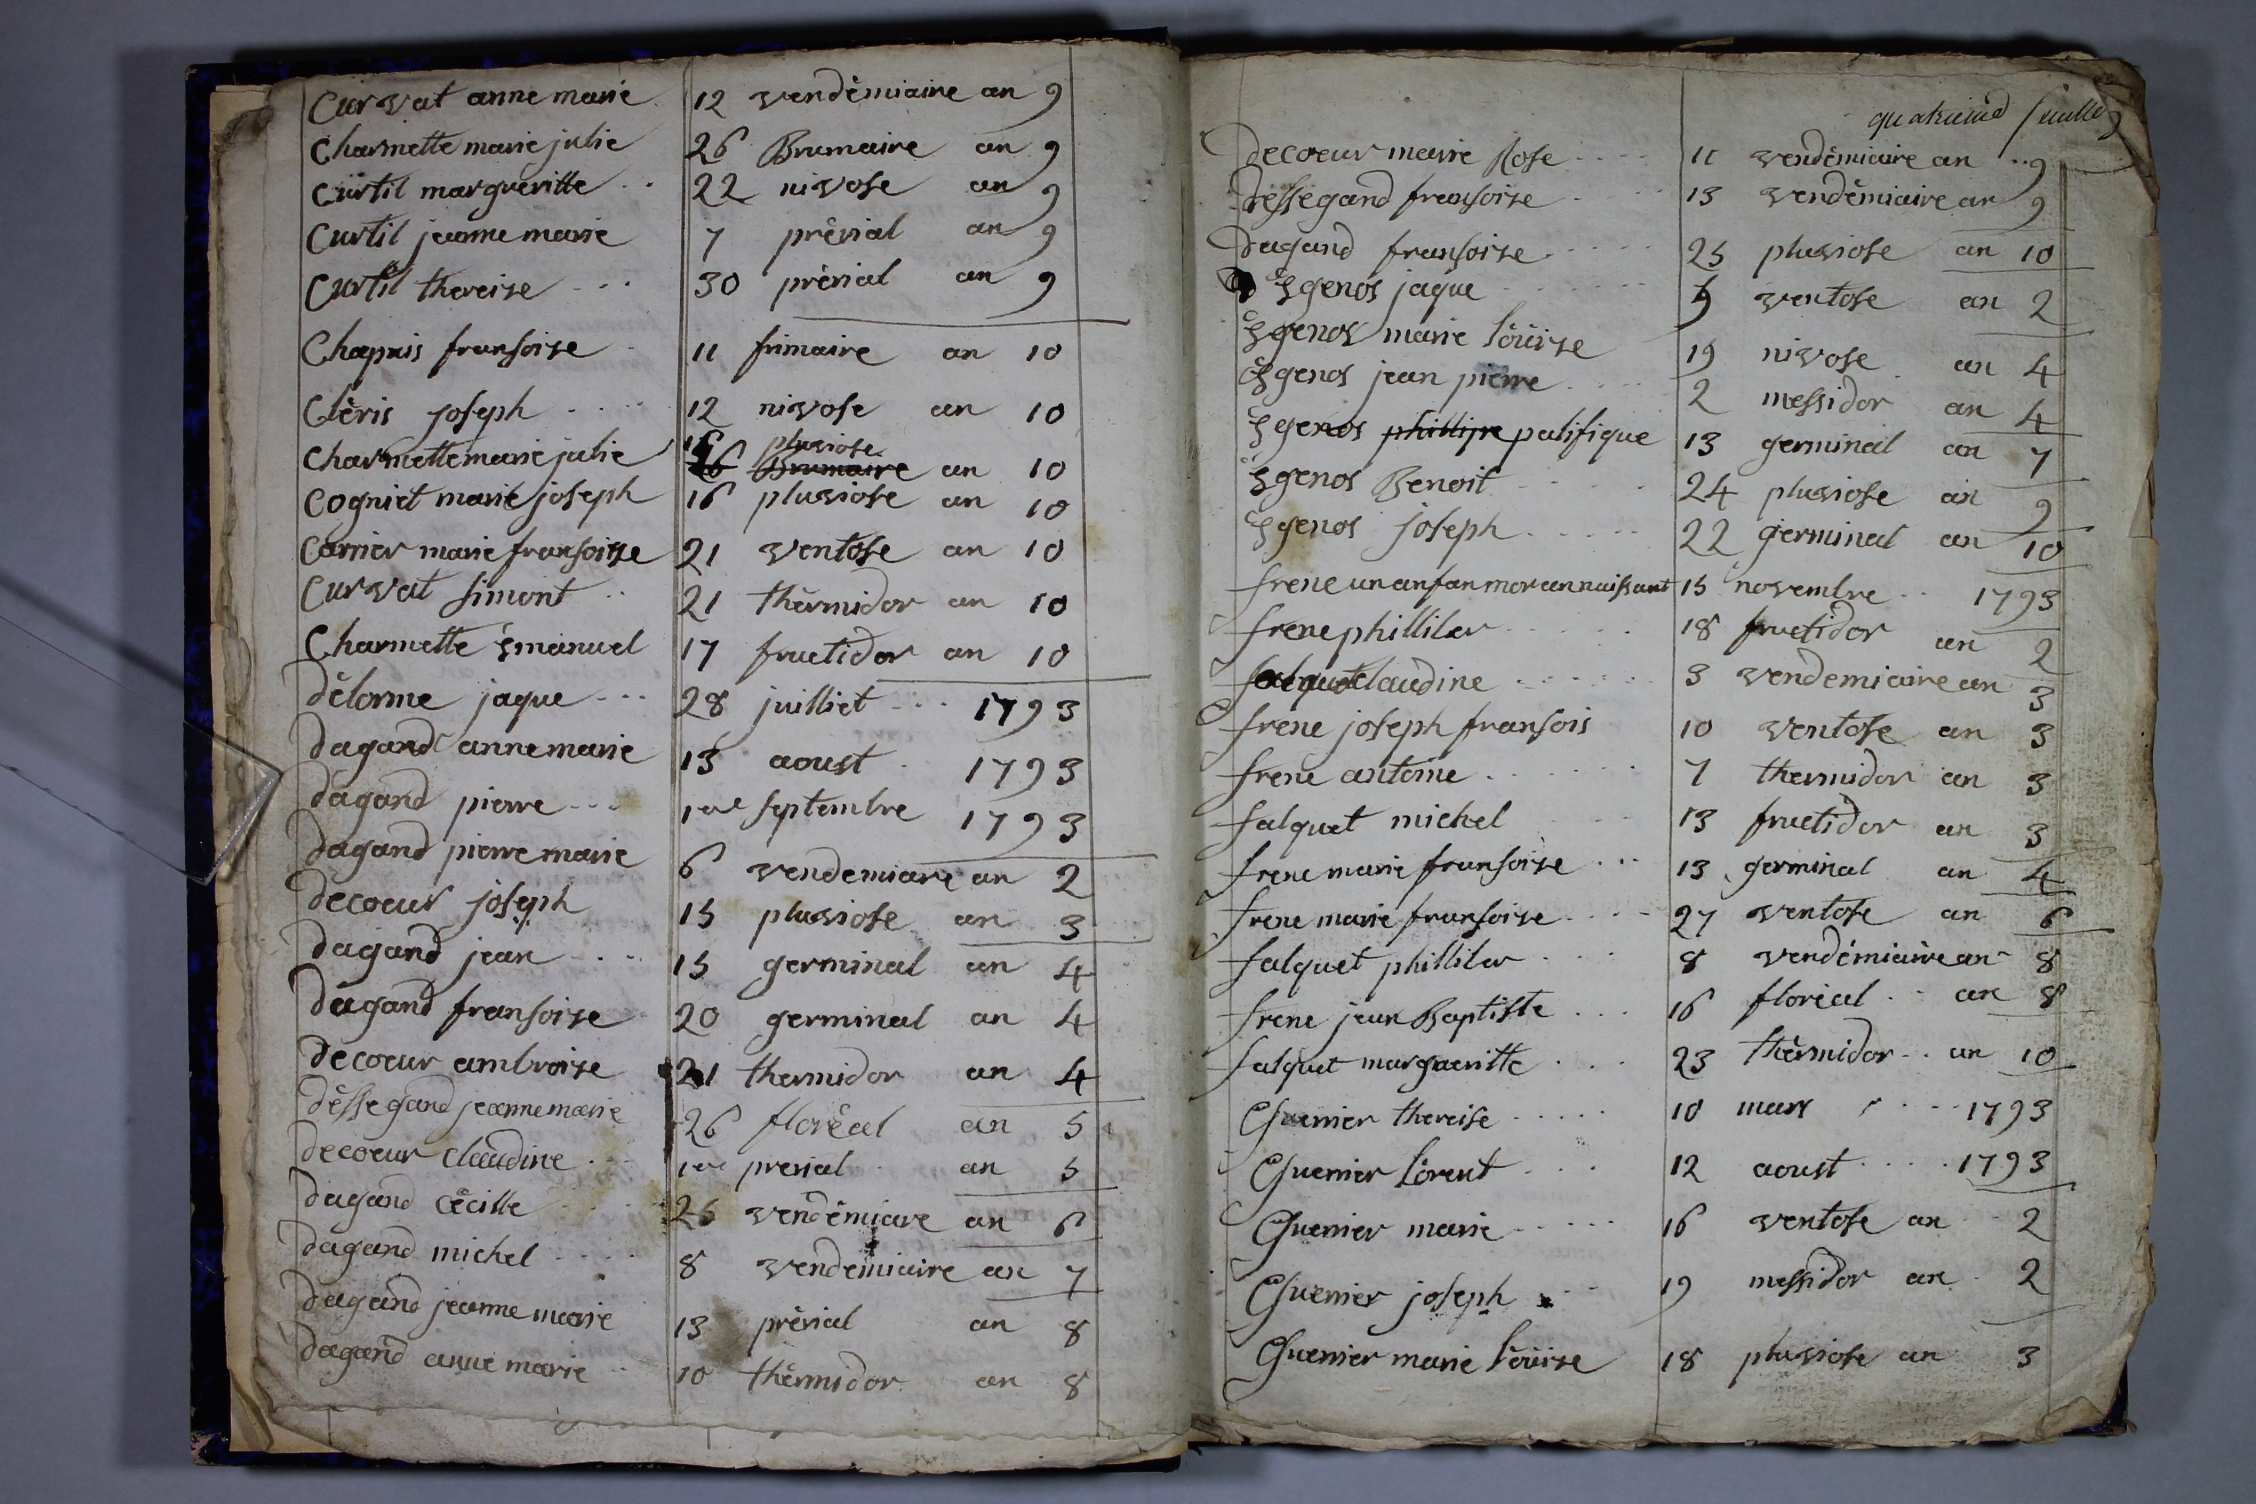 Curvat anne marie 12 vendémiaire an 9
Charmette marie julie 26 Brumaire an 9
Curtil margueritte .. 22 nivose an 9
Curtil jeanne marie 7 prérial an 9
Curtil thereise ... 30 prérial an 9
Chapuis fransoise . 11 frimaire an 10
Cléris joseph ..... 12 nivose an 10
pluviose
Charmette marie julie 26 Brumaire an 10
Cogniet marie joseph 16 pluviose an 10
Carrier marie fransoise 21 ventose an 10
Curvat simont .. 21 thérmidor an 10
Charmette Emanuel 17 fructidor an 10
délorme jaque ... 28 juilliet ... 1793
dagand anne marie 13 aoust . 1793
dagand pierre ... 1ere septembre 1793
dagand pierre marie 6 vendemiare an 2
decoeur joseph 15 pluviose an 3
dagand jean .... 15 germinal an 4
dagand fransoise 20 germinal an 4
decoeur ambroise 21 thermidor an 4
déssegand jeanne marie 26 floréal an 5
decoeur Claudine ... 1ere prerial . an 5
dagand cécille .... 25 vendémiare an 6
dagand michel ..... 8 vendemiaire an 7
dagand jeanne marie 13 prérial an 8
dagand anne marie .. 10 thérmidor an 8
quatrieme feuille
decoeur marie Rose .... 11 vendémiaire an .. 9
dessegand fransoise .. 13 vendémiaire an 9
dagand fransoise ..... 25 pluviose an 10
Egenos jaque ....... 9 ventose an 2
Egenos marie loüise 19 nivose an 4
Egenos jean pierre .... 2 messidor an 4
Egenos phillipe pasifique 13 germinal an 7
Egenos Benoit ..... 24 pluviose an 9
Egenos joseph ..... 22 germinal an 10
frene un anfan mor an naissant 15 novembre .. 1793
frene philliber ..... 18 fructidor an 2
falquet Claudine ....... 3 vendemiaire an 3
frene joseph fransois 10 ventose an 3
frene antoine ...... 7 thermidor an 3
falquet michel ... 13 fructidor an 3
frene marie fransoise ... 13 germinal an 4
frene marie fransoise .... 27 ventose an 6
falquet philliber .... 8 vendémiaire an 8
frene jean Baptiste ... 16 floréal .. an 8
falquet margueritte ... 23 thérmidor .. an 10
Guenier thereise ..... 10 mars ..... 1793
Guenier lorent .... 12 aoust ..... 1793
Guenier marie ...... 16 ventose an 2
Guenier joseph .. 19 messidor an . 2
Guenier marie loüise 18 pluviose an 3